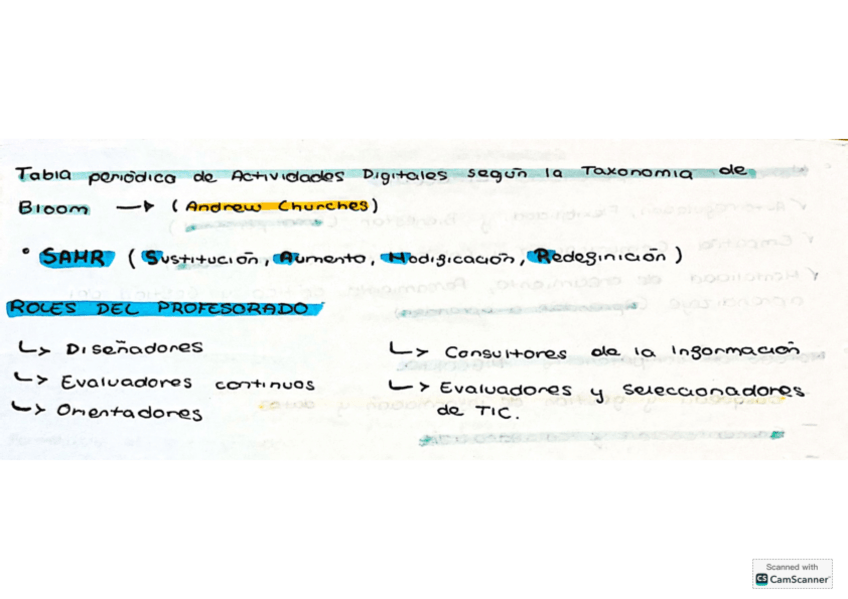 Tabla periódica de Actividades Digitales según la Taxonomía de
Bloom → (Andrew Churches)
• SAMR (Sustitución, Aumento, Modificación, Redefinición)
ROLES DEL PROFESORADO
↳ Diseñadores
↳ Evaluadores continuos
↳ Orientadores
↳ Consultores de la información
↳ Evaluadores y seleccionadores
de TIC.
Scanned with
CS CamScanner